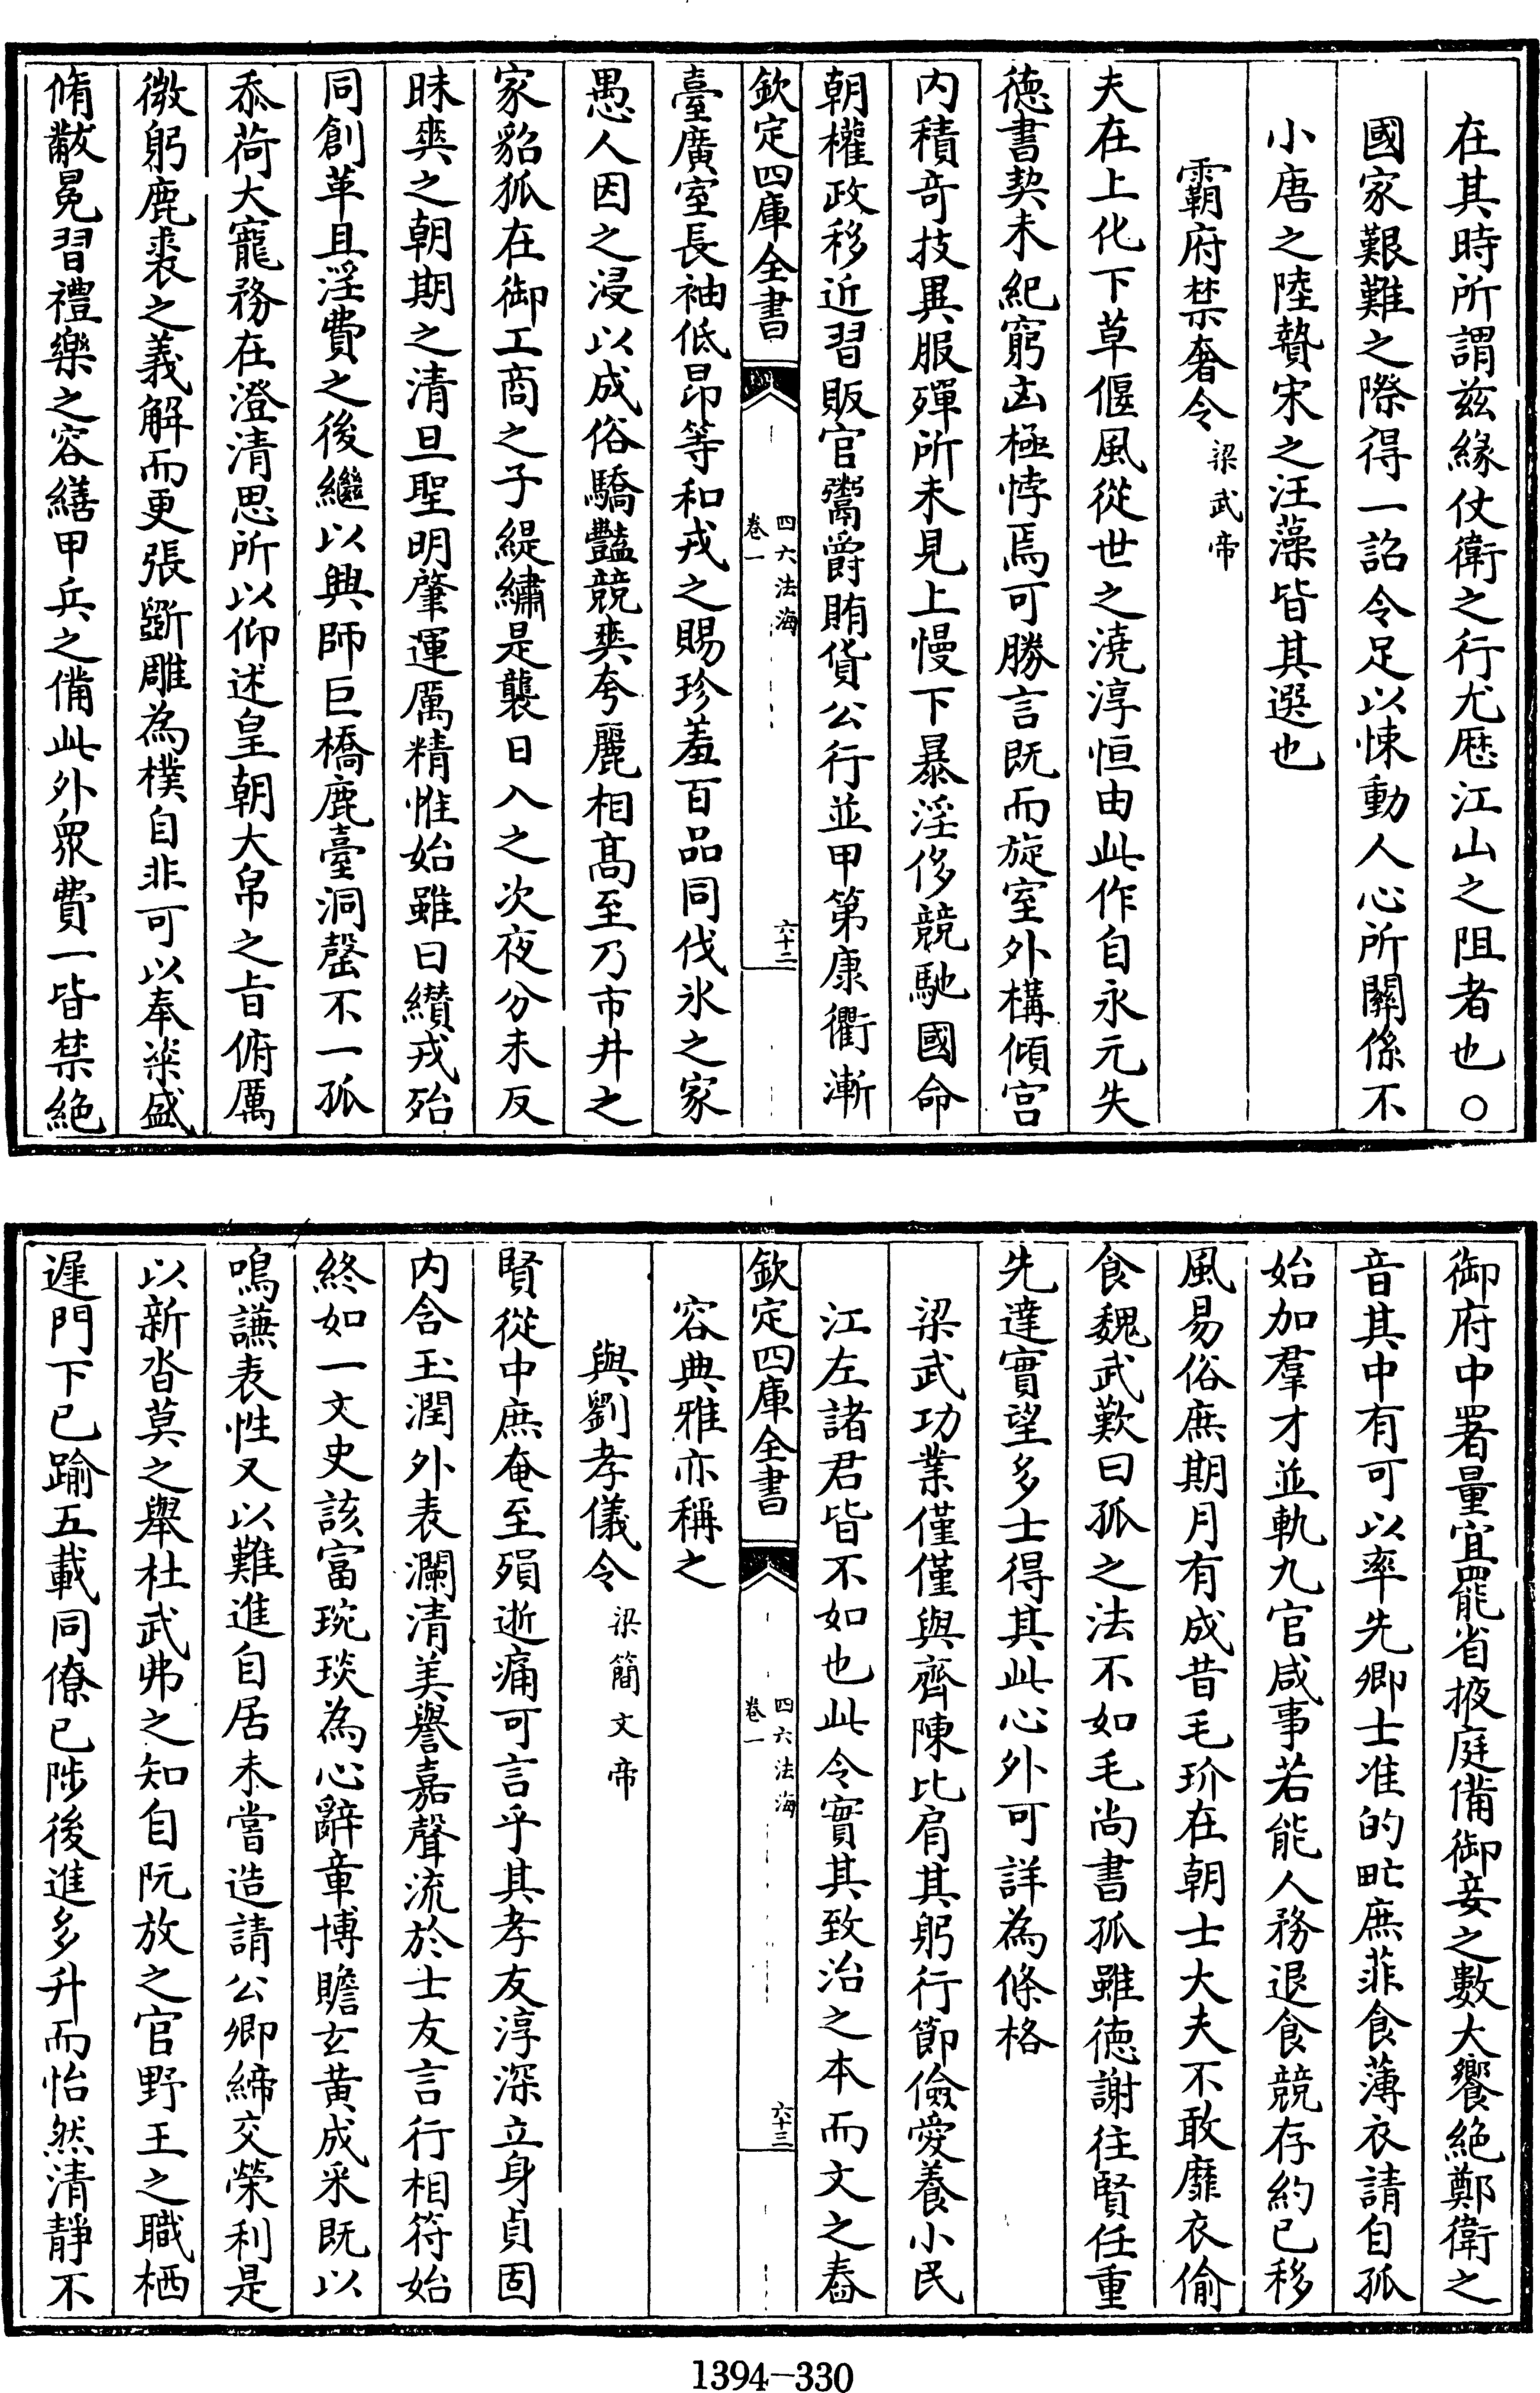 在其時所謂兹緣仗衛之行尤厯江山之阻者也○
國家艱難之際得一詔令足以悚動人心所關係不
小唐之陸贄宋之汪藻皆其選也
霸府禁奢令梁武帝
夫在上化下草偃風從世之澆淳恒由此作自永元失
德書契未紀窮凶極悖焉可勝言既而旋室外構傾宫
内積奇技異服殫所未見上慢下暴淫侈競馳國命
朝權政移近習販官鬻爵賄貨公行並甲第康衢漸
欽定四庫全書
四六法海
卷一
六十二
臺廣室長袖低昂等和戎之賜珍羞百品同伐氷之家
愚人因之浸以成俗驕豔競爽夸麗相高至乃市井之
家貂狐在御工商之子緹繡是襲日入之次夜分未反
昧爽之朝期之清旦聖明肇運厲精惟始雖曰纘戎殆
同創革且淫費之後繼以興師巨橋鹿臺洞罄不一孤
忝荷大寵務在澄清思所以仰述皇朝大帛之㫖俯厲
微躬鹿裘之義解而更張斵雕為樸自非可以奉粢盛
脩黻冕習禮樂之容繕甲兵之備此外衆費一皆禁絶
御府中署量宜罷省掖庭備御妾之數大饗絶鄭衛之
音其中有可以率先卿士准的甿庶菲食薄衣請自孤
始加羣才並軌九官咸事若能人務退食競存約已移
風易俗庶期月有成昔毛玠在朝士大夫不敢靡衣偷
食魏武歎曰孤之法不如毛尚書孤雖徳謝往賢任重
先達實望多士得其此心外可詳為條格
梁武功業僅僅與齊陳比肩其躬行節儉愛養小民
江左諸君皆不如也此令實其致治之本而文之舂
欽定四庫全書
四六法海
卷一
六十三
容典雅亦稱之
與劉孝儀令梁簡文帝
賢從中庶奄至殞逝痛可言乎其孝友淳深立身貞固
内含玉潤外表瀾清美譽嘉聲流於士友言行相符始
終如一文史該富琬琰為心辭章博贍玄黄成采既以
鳴謙表性又以難進自居未嘗造請公卿締交榮利是
以新沓莫之舉杜武弗之知自阮放之官野王之職栖
遲門下已踰五載同僚已陟後進多升而怡然清靜不
1394-330